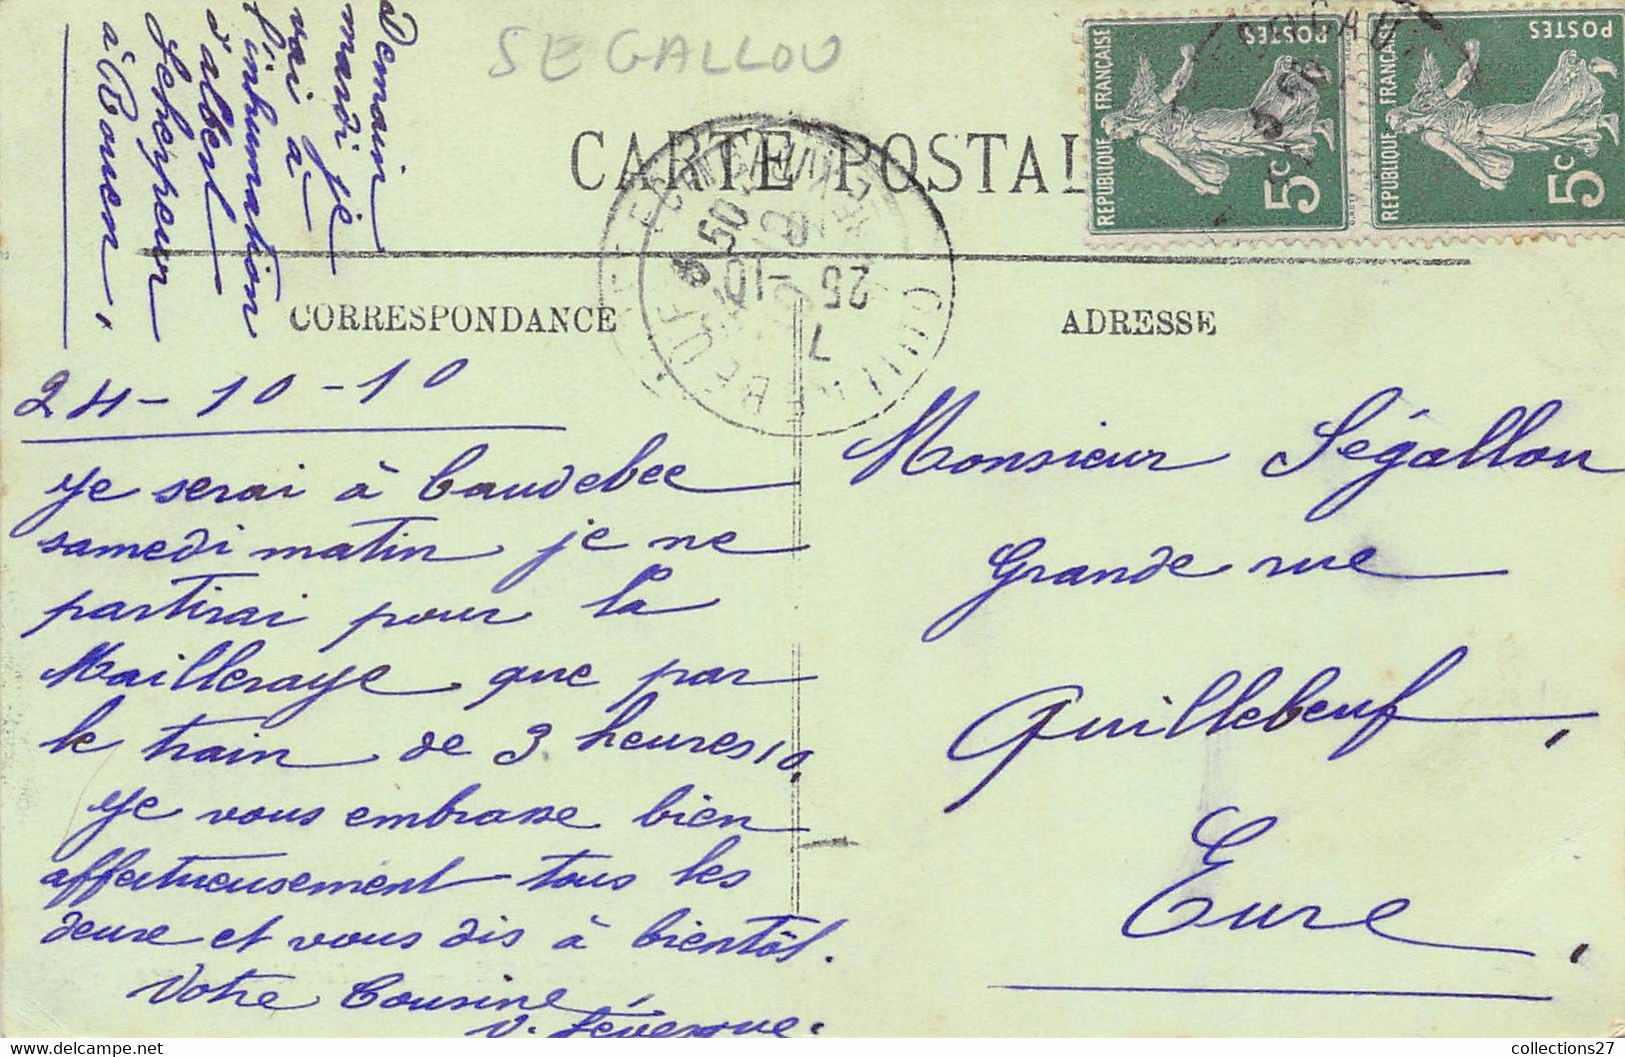 SEGALLOU
CARTE POSTAL
RÉPUBLIQUE FRANÇAISE
POSTES
5c
RÉPUBLIQUE FRANÇAISE
POSTES
5c
Demain
mardi je
vai à
l'inhumation
d'albert
à Rouen,
CORRESPONDANCE
QUILLEBEUF
EURE
7
25-10
5 50
24-10-10
je serai à Caudebec
samedi matin je ne
partirai pour la
Mailleraye que par
le train de 3 heures 10,
je vous embrasse bien
affectueusement tous les
deux et vous dis à bientôt.
Votre Cousine
V. Lévesque.
ADRESSE
Monsieur Ségallou
Grande rue
Quillebeuf,
Eure.
collections27